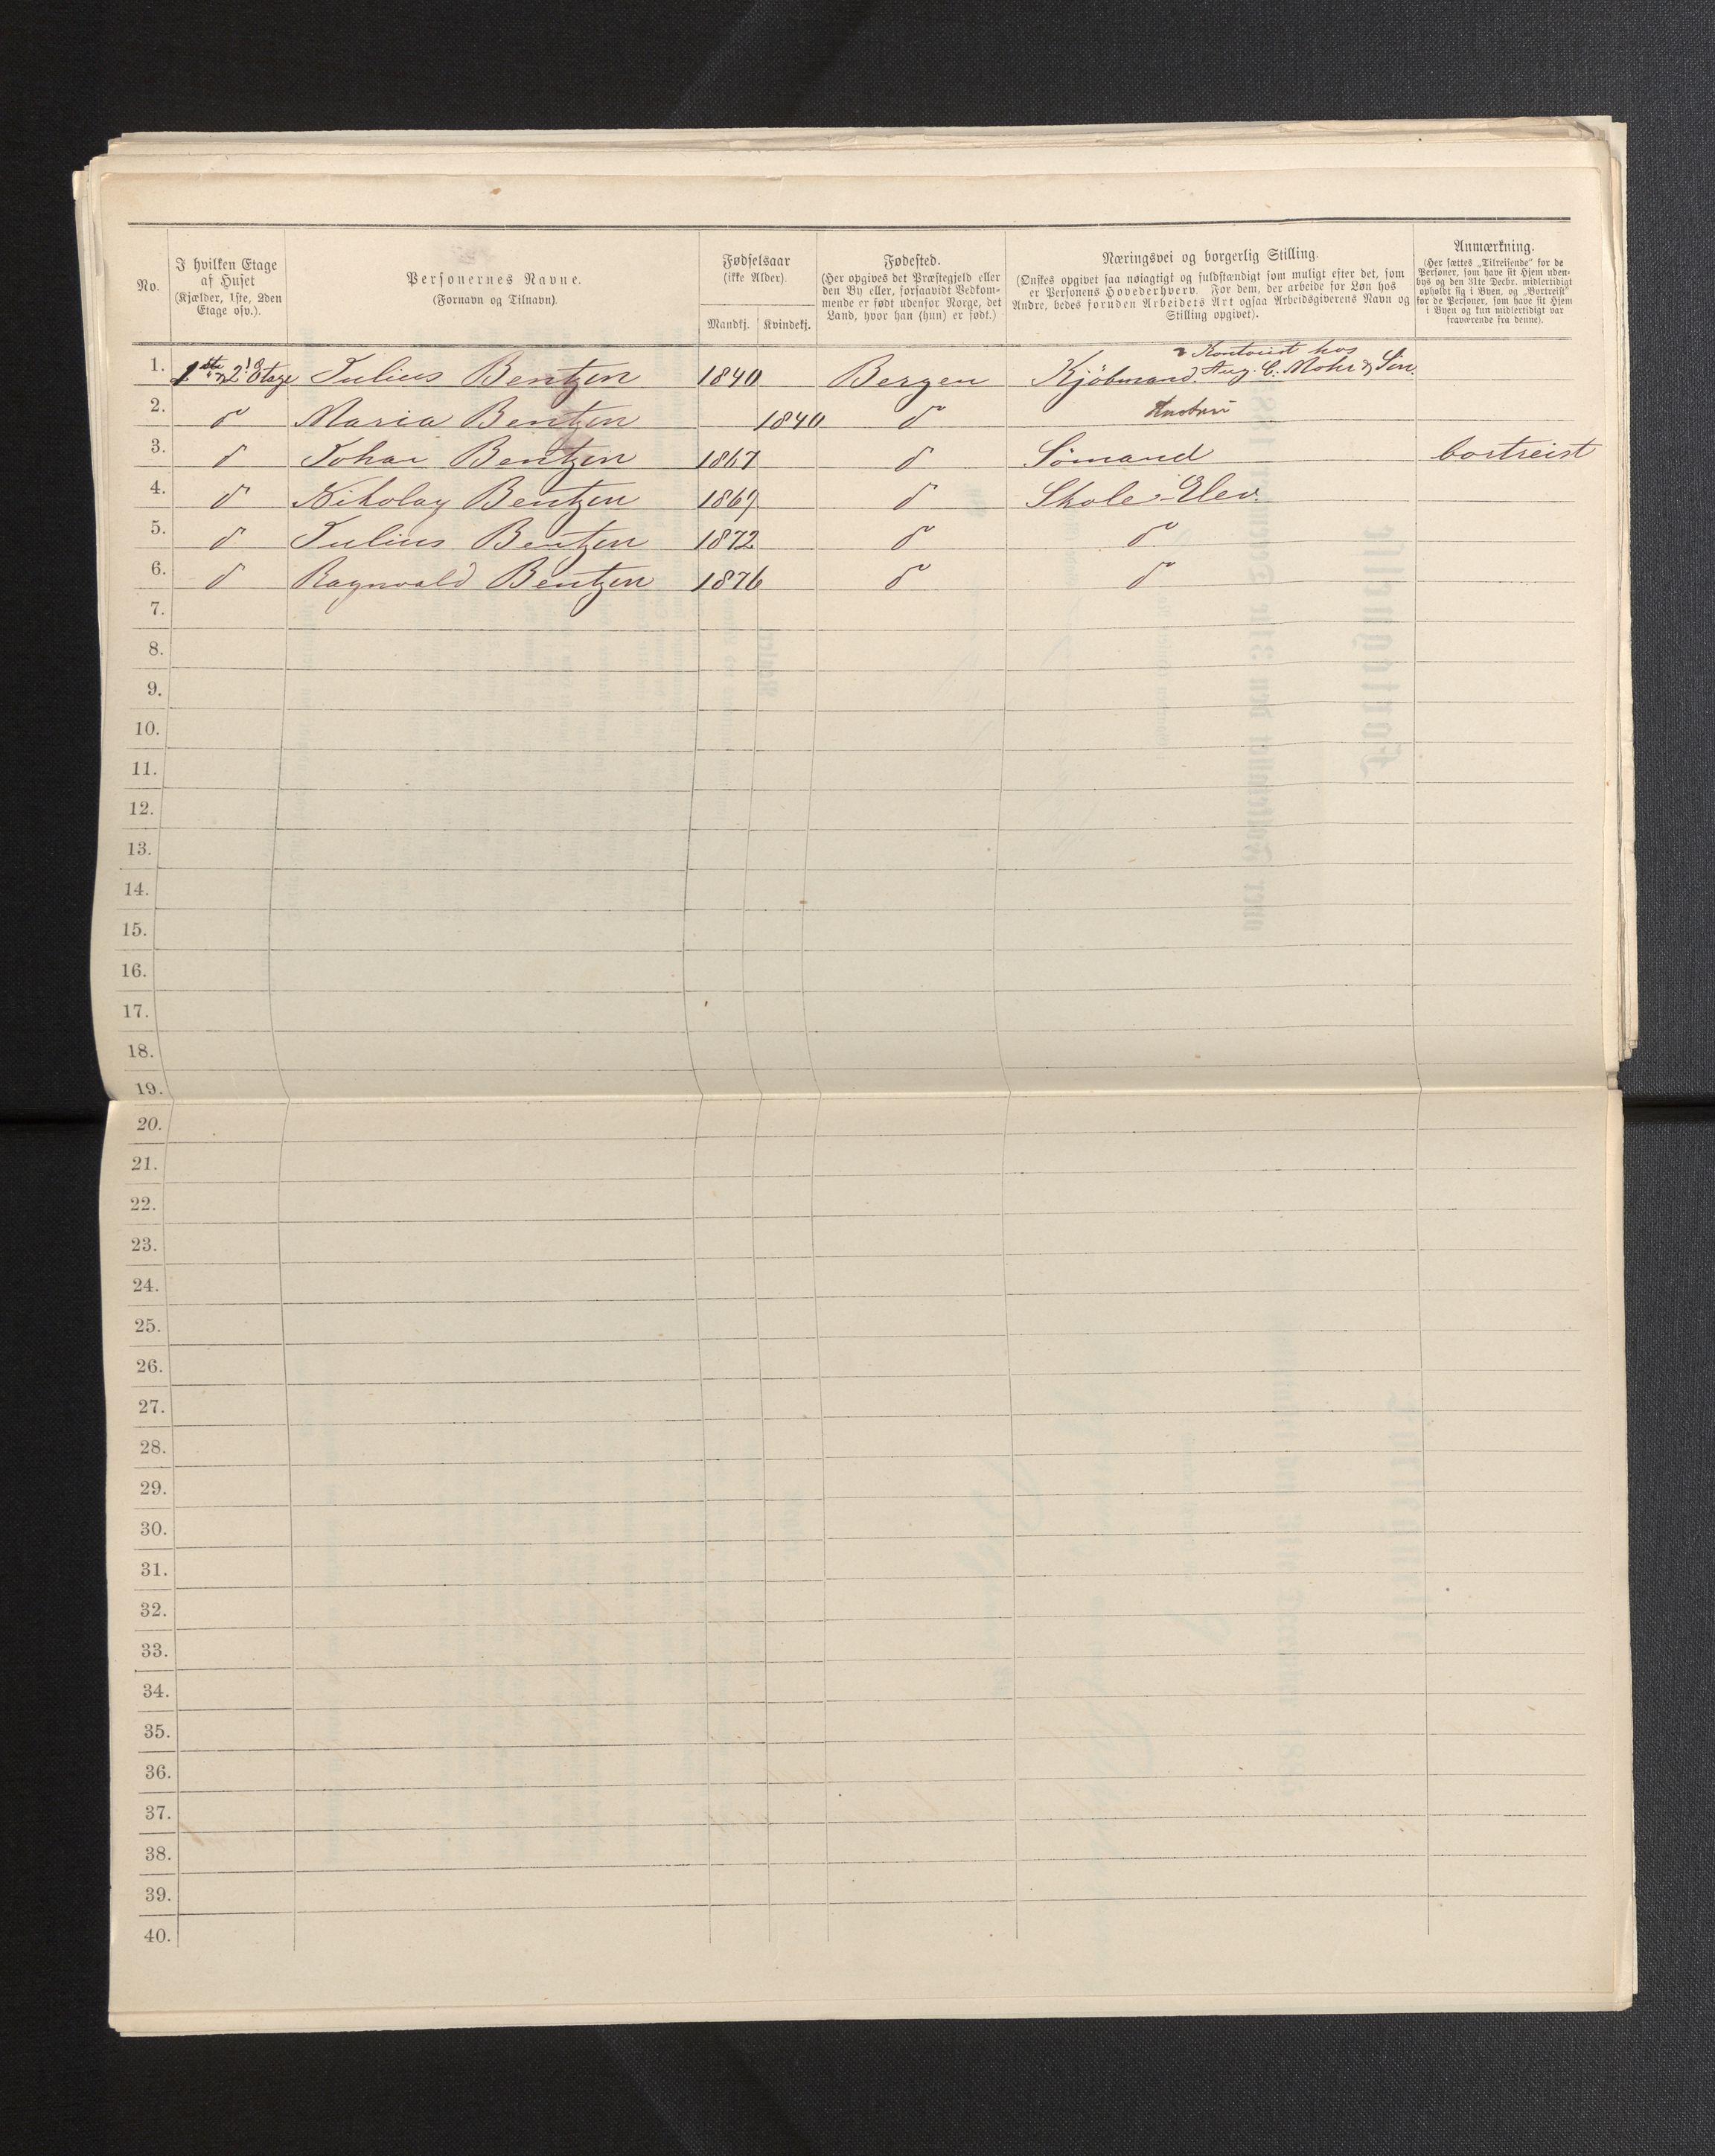 No.
I hvilken Etage
af Huset
(Kjælder, 1ste, 2den
Etage osv.).
Personernes Navne.
(Fornavn og Tilnavn).
Fødselsaar
(ikke Alder).
Mandkj. Kvindekj.
Fødested.
(Her opgives det Præstegjeld eller
den By eller, forsaavidt Vedkom-
mende er født udenfor Norge, det
Land, hvor han (hun) er født.)
Næringsvei og borgerlig Stilling.
(Ønskes opgivet saa nøiagtigt og fuldstændigt som muligt efter det, som
er Personens Hovederhverv. For dem, der arbeide for Løn hos
Andre, bedes foruden Arbeidets Art ogsaa Arbeidsgiverens Navn og
Stilling opgivet).
Anmærkning.
(Her sættes „Tilreisende" for de
Personer, som have sit Hjem uden-
bys og den 31te Decbr. midlertidigt
opholdt sig i Byen, og „Bortreist"
for de Personer, som have sit Hjem
i Byen og kun midlertidigt var
fraværende fra denne).
Kontorist hos
1. 1ste 2 Etage Julius Bentzen 1840 Bergen Kjöbmand. Aug. C. Mohr & Sön.
2. d Maria Bentzen 1840 d Hustru
3. d Johan Bentzen 1867 d Sömand bortreist
4. d Nikolay Bentzen 1869 d Skole-Elev.
5. d Julius Bentzen 1872 d d
6. d Ragnvald Bentzen 1876 d d
7.
8.
9.
10.
11.
12.
13.
14.
15.
16.
17.
18.
19.
20.
21.
22.
23.
24.
25.
26.
27.
28.
29.
30.
31.
32.
33.
34.
35.
36.
37.
38.
39.
40.